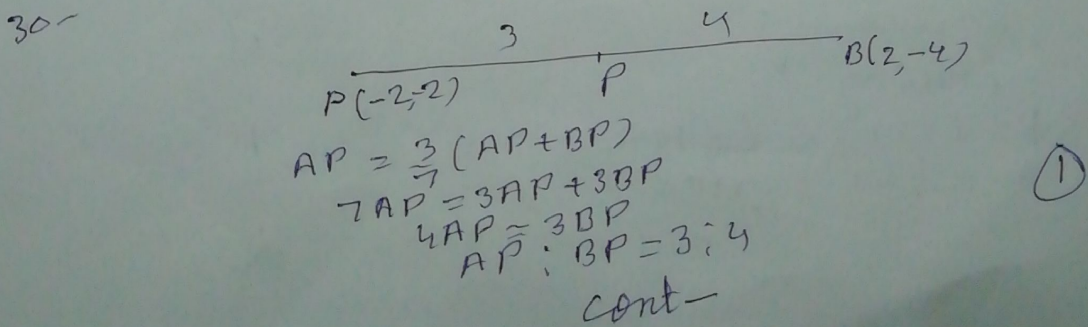 30-
3 4
P(-2,-2) P B(2,-4)
AP = 3/7 (AP+BP)
7AP = 3AP+3BP
4AP = 3BP
AP : BP = 3:4
1
cont-